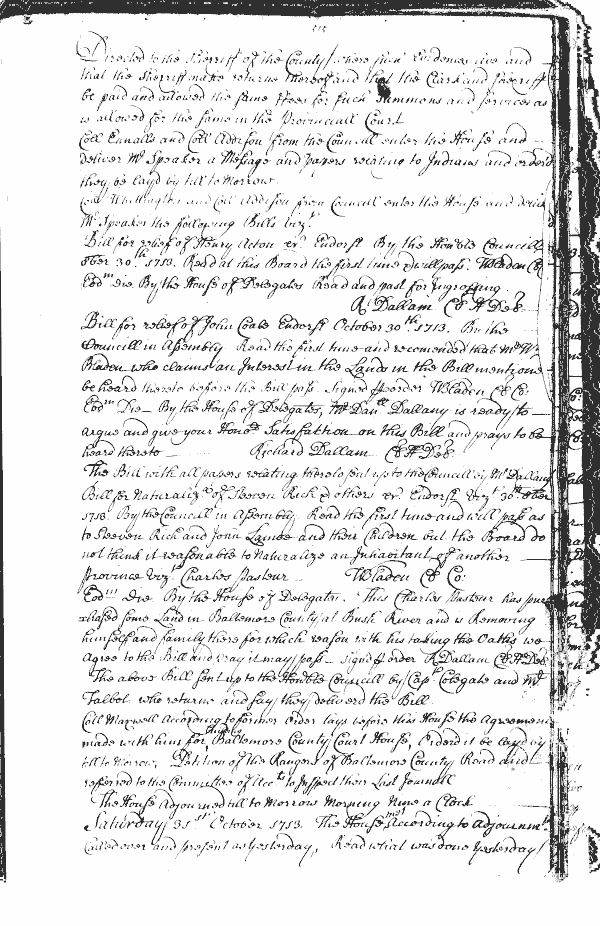 Directed to the Sherriff of the County where such Evidences live and
that the Sherriff make returne thereof and that the Clark and Sherriff
be paid and allowed the same ffees for such summons and services as
is allowed for the same in the Provinciall Court
Coll Ennalls and Coll Addison from the Councill enter the House and
deliver Mr Speaker a Message and papers relating to Indians and orderd
they be layd by till to Morrow
and Coll Addison from Councill enter the House and
Mr Speaker the following Bills vizt
Bill for relief of Henry Acton &c Endorst By the Honble Councill
8ber 30th 1713. Read at this Board the first time & will pass. WBladen Cl Co
Eodm die By the House of Delegates Read and past for Ingrossing.
R Dallam Cl H Del
Bill for relief of John Coale Endorst October 30th 1713. By the
Councill in Assembly Read the first time and recomended that Mr Wm
Bladen who claims an Interest in the Lands in the Bill mentioned
be heard thereto before the Bill pass Signed p order WBladen Cl Co:
Eodm Die - By the House of Delegates, Mr Danll Dallany is ready to
argue and give your Honrs Satisfaction on this Bill and prays to be
heard thereto Richard Dallam Cl H Del
The Bill with all papers relating thereto sent up to the Councill by Mr Dallany
Bill for Naturalizn of Steeven Rich & others &c. Endorst vizt 30th 8ber
1713. By the Councill in Assembly Read the first time and will pass as
to Steeven Rich and John Lamee and their Children but the Board do
not think it reasonable to Naturalize an Inhabitant of another
Province vizt Charles Pasteur WBladen Cl Co:
Eodm die By the House of Delegates. This Charles Pasteur has pur
chased some Land in Baltemore County at Bush River and is Removing
himself and family there for which reason with his taking the Oaths we
Agree to the Bill and pray it may pass - signd p order R Dallam Cl H Del
The above Bill sent up to the Honble Councill by Capt Colegate and Mr
Talbot who returne and say they delivered the Bill
Coll Maxwell According to former Order lays before this House the Agreement
made with him for building Baltemore County Court House, Orderd it be layd by
till to Morrow, Petition of the Rangers of Baltemore County Read and
referred to the Committee of Accts to Inspect their Last Journall
The House Adjourned till to Morrow Morning Nine a Clock
Saturday 31st October 1713. The House met According to Adjournmt
Called over and present as Yesterday, Read what was done Yesterday